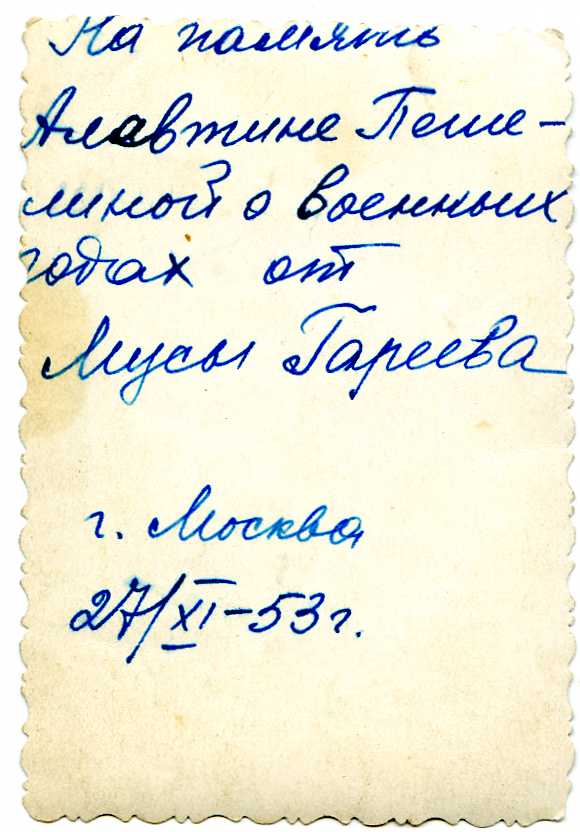 На память
Алавтине Пеше-
линой о военных
годах от
Мусы Гареева
г. Москва
27/XI-53 г.